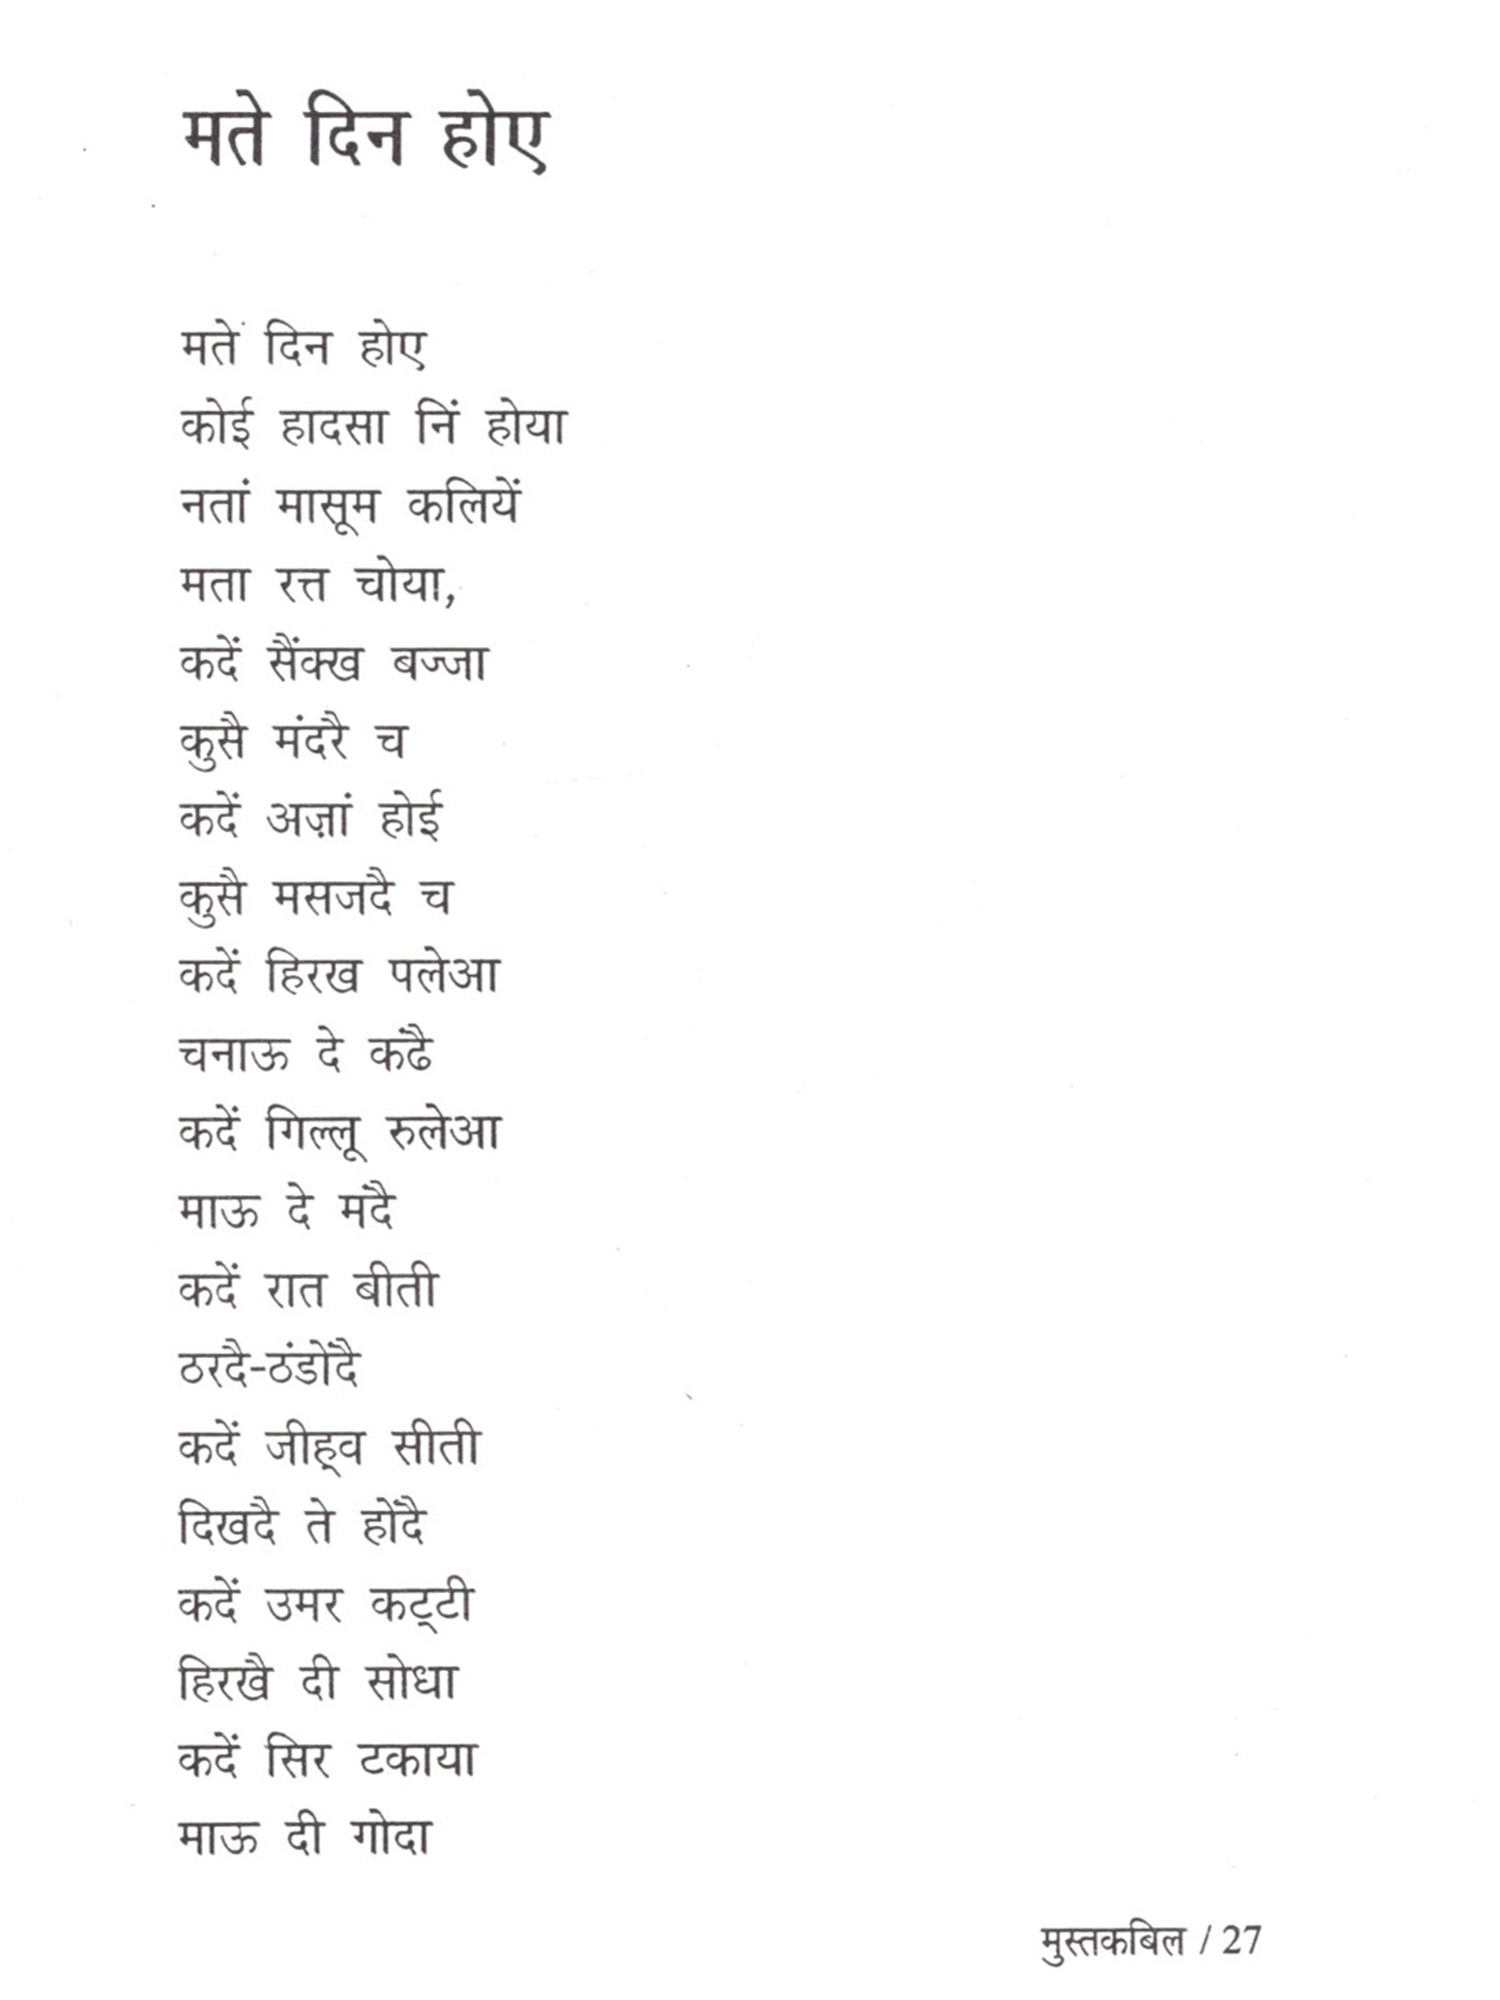 मते दिन होए
मते दिन होए
कोई हादसा निं होया
नतां मासूम कलियें
मता रत्त चोया,
कदें सैंक्ख बज्जा
कुसै मंदरै च
कदें अज़ां होई
कुसै मसजदै च
कदें हिरख पलेआ
चनाऊ दे कंढै
कदें गिल्लू रुलेआ
माऊ दे मंदै
कदें रात बीती
ठरदै-ठंडोंदै
कदें जीह्‌व सीती
दिखदै ते होंदै
कदें उमर कट्‌टी
हिरखै दी सोधा
कदें सिर टकाया
माऊ दी गोदा
मुस्तकबिल / 27